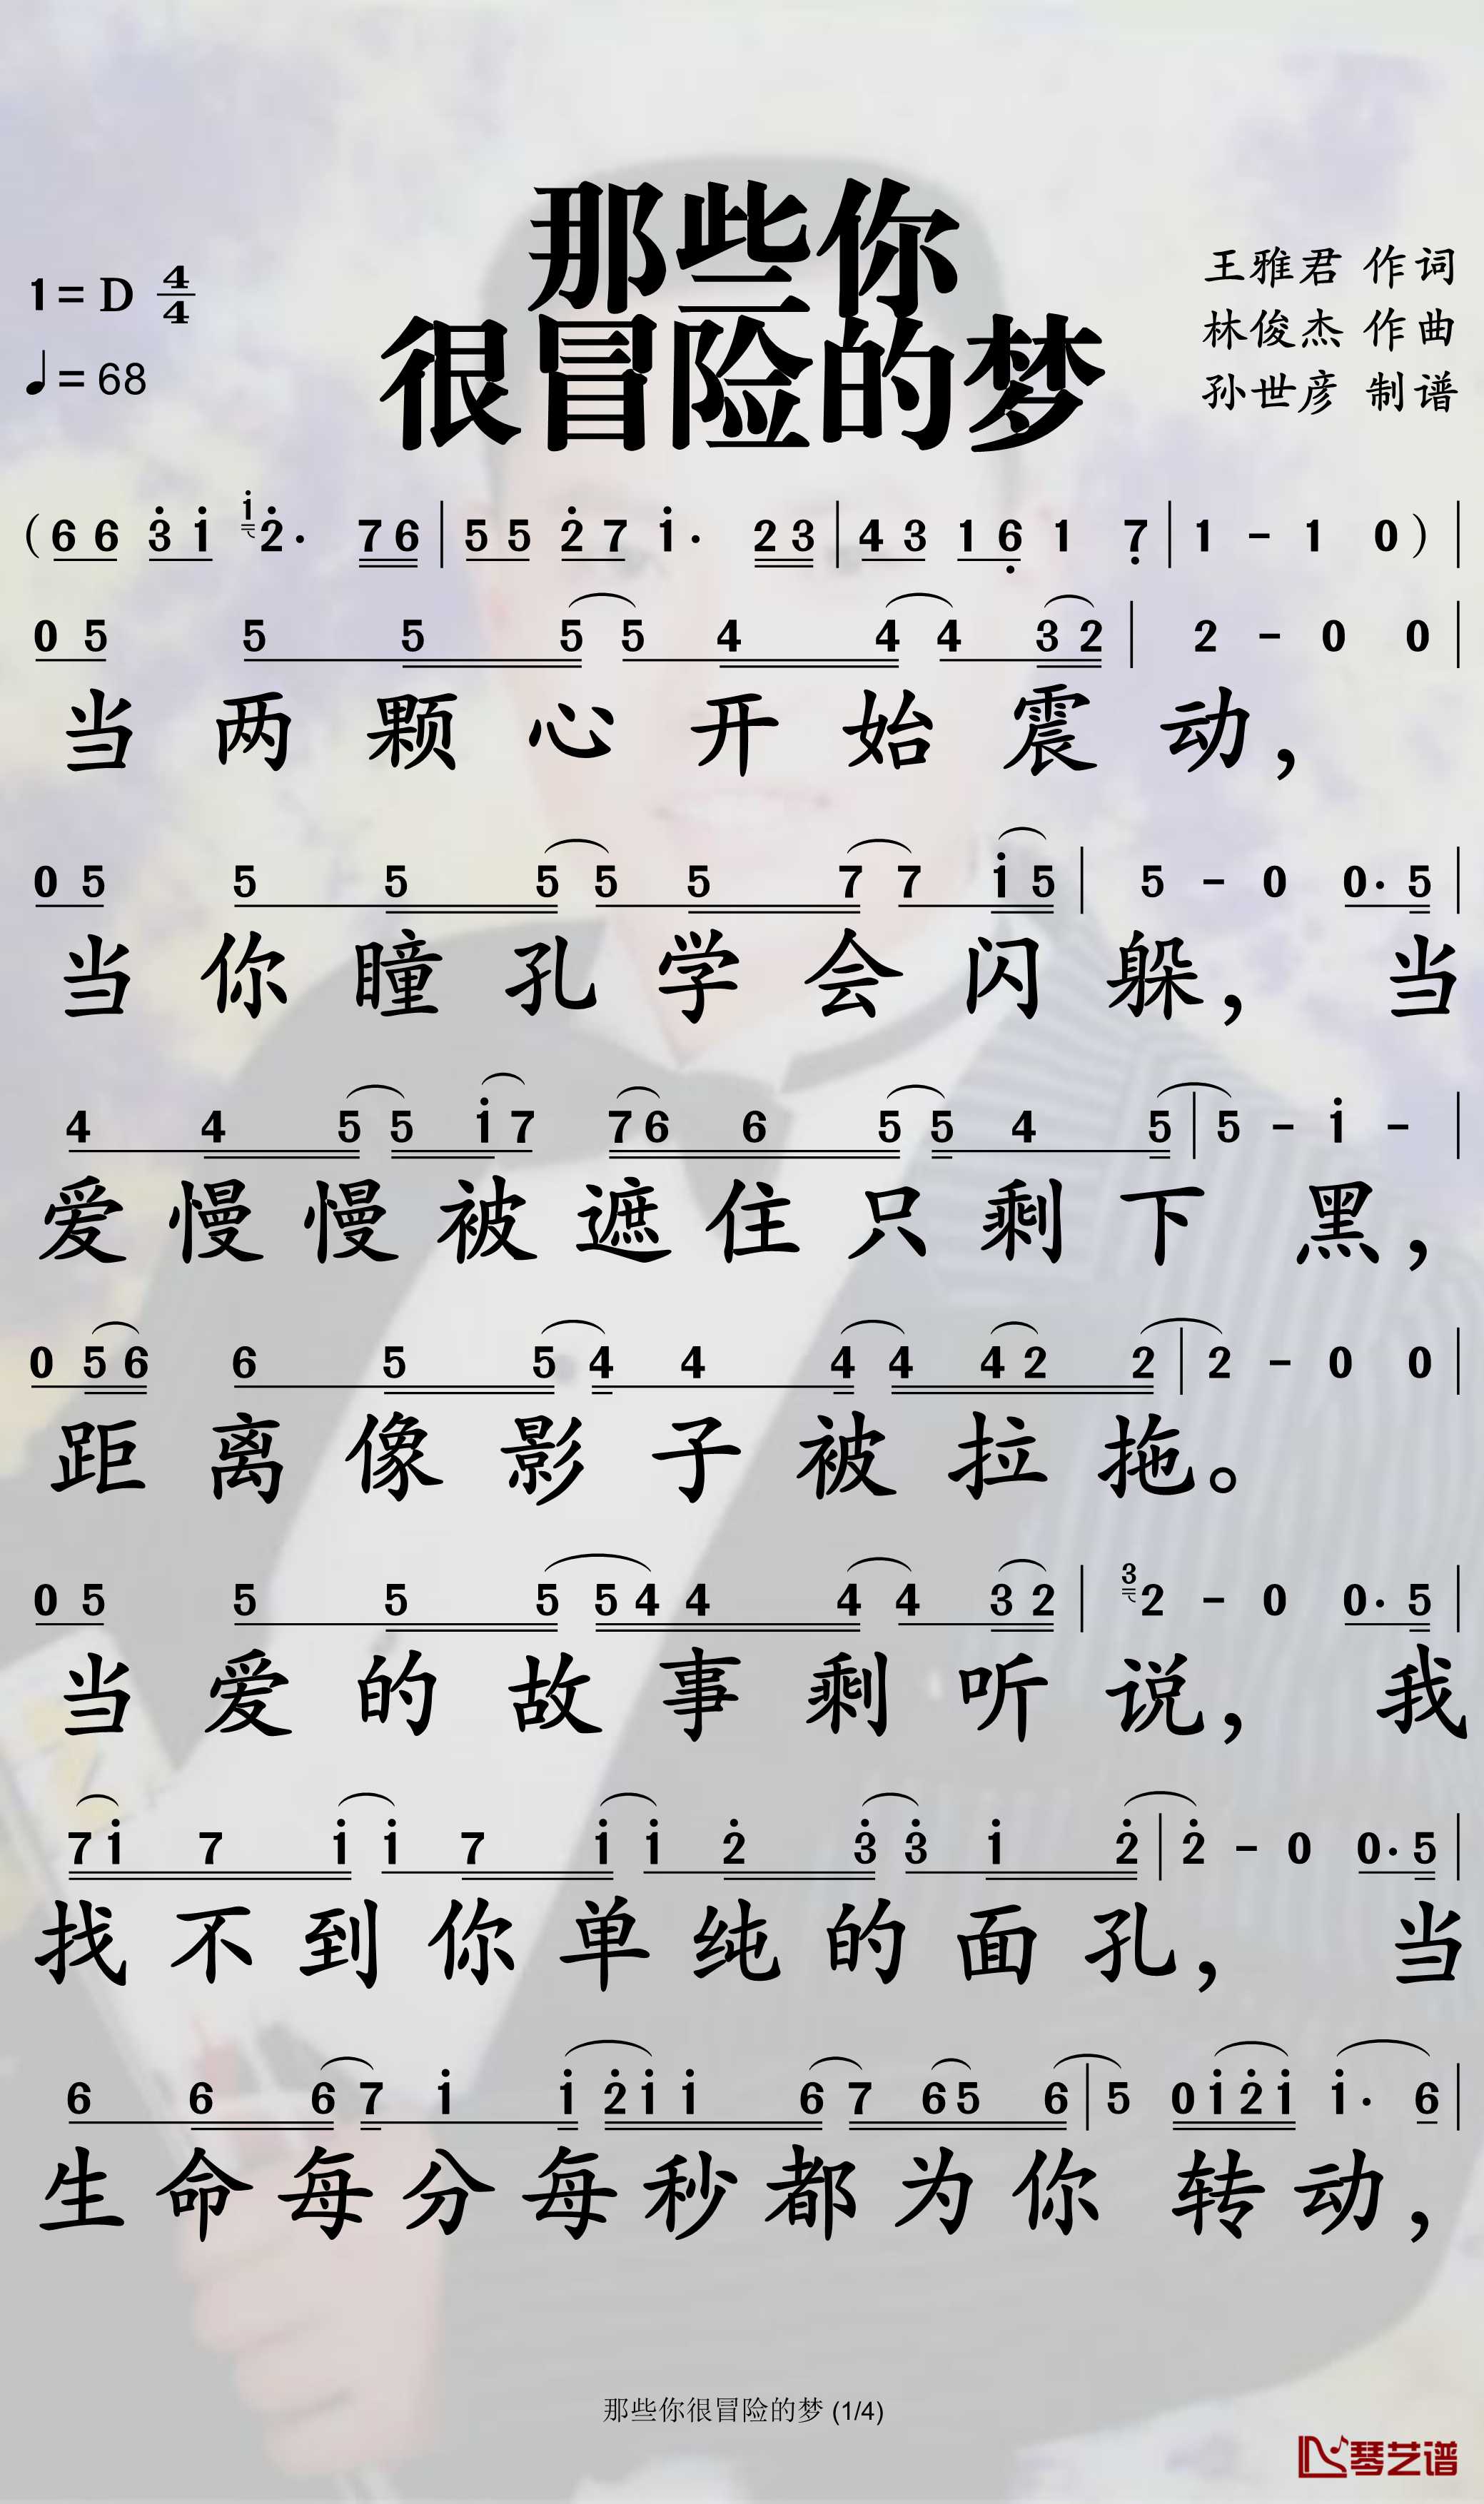 那些你
很冒险的梦
1=D 4/4
♩=68
王雅君 作词
林俊杰 作曲
孙世彦 制谱
(6 6 3̇ 1̇ 1̇2̇· 7 6 | 5 5 2̇ 7 1̇· 2 3 | 4 3 1 6̣ 1 7̣ | 1 - 1 0) |
0 5 5 5 5 5 4 4 4 3 2 | 2 - 0 0 |
当两颗心开始震动，
0 5 5 5 5 5 5 7 7 1̇ 5 | 5 - 0 0· 5 |
当你瞳孔学会闪躲， 当
4 4 5 5 1̇ 7 7 6 6 5 5 4 5 | 5 - 1̇ - |
爱慢慢被遮住只剩下 黑，
0 5 6 6 5 5 4 4 4 4 4 2 2 | 2 - 0 0 |
距离像影子被拉拖。
0 5 5 5 5 5 4 4 4 4 3 2 | 3 2 - 0 0· 5 |
当爱的故事剩听说， 我
7 1̇ 7 1̇ 1̇ 7 1̇ 1̇ 2̇ 3̇ 3̇ 1̇ 2̇ | 2̇ - 0 0· 5 |
找不到你单纯的面孔， 当
6 6 6 7 1̇ 1̇ 2̇ 1̇ 1̇ 6 7 6 5 6 | 5 0 1̇ 2̇ 1̇ 1̇· 6 |
生命每分每秒都为你 转动，
那些你很冒险的梦 (1/4)
琴艺谱